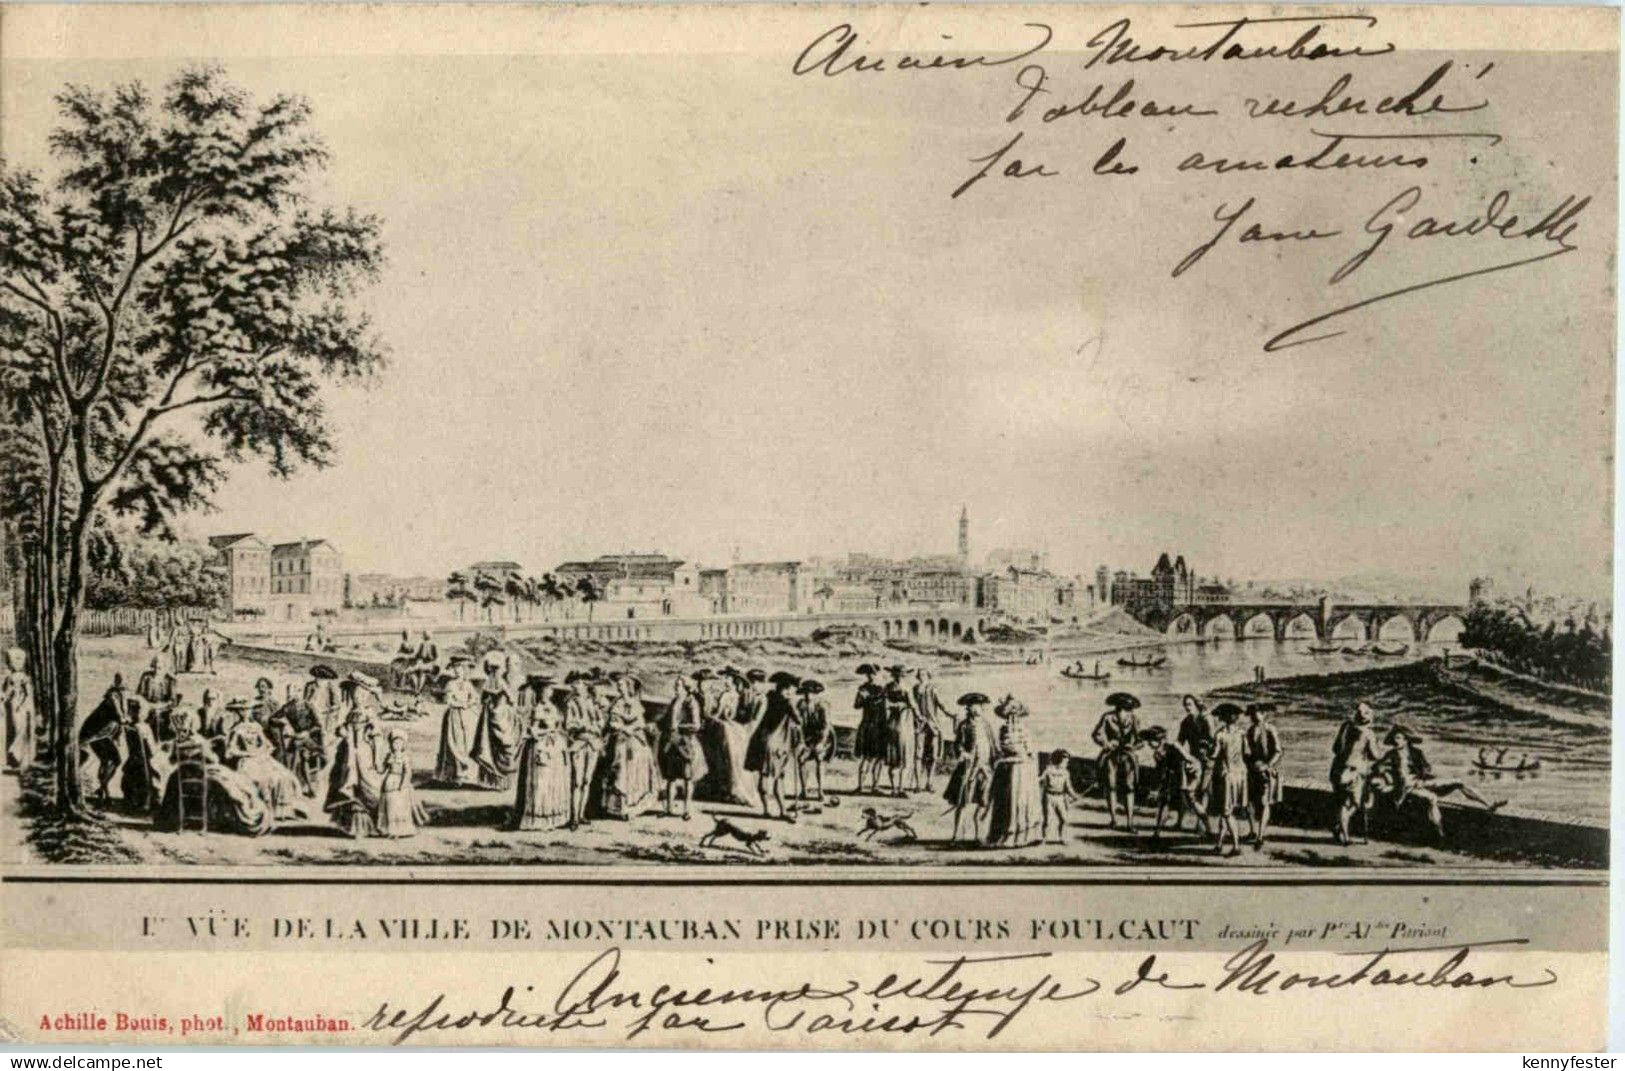 Ancien Montauban
Tableau recherché
par les amateurs.
Jane Gardelle
Iʳᵉ VÜE DE LA VILLE DE MONTAUBAN PRISE DU COURS FOULCAUT dessinée par Pʳᵉ Alᵈʳᵉ Parisot
Ancienne estampe de Montauban
reproduite par Parisot
Achille Bouis, phot., Montauban.
www.delcampe.net
kennyfester